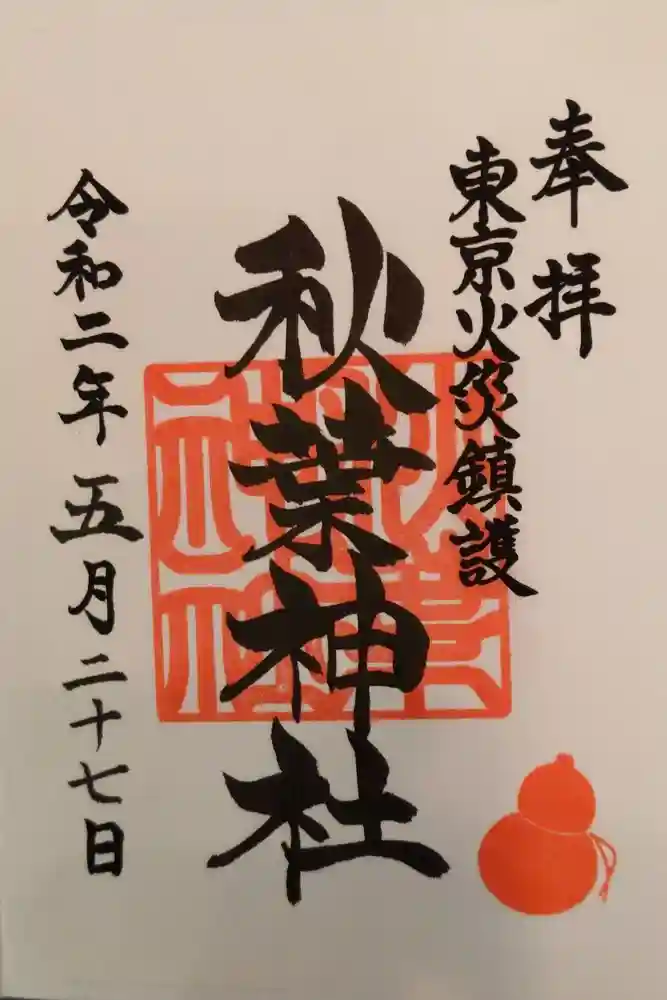 奉拝
東京火災鎮護
秋葉神社
令和二年五月二十七日